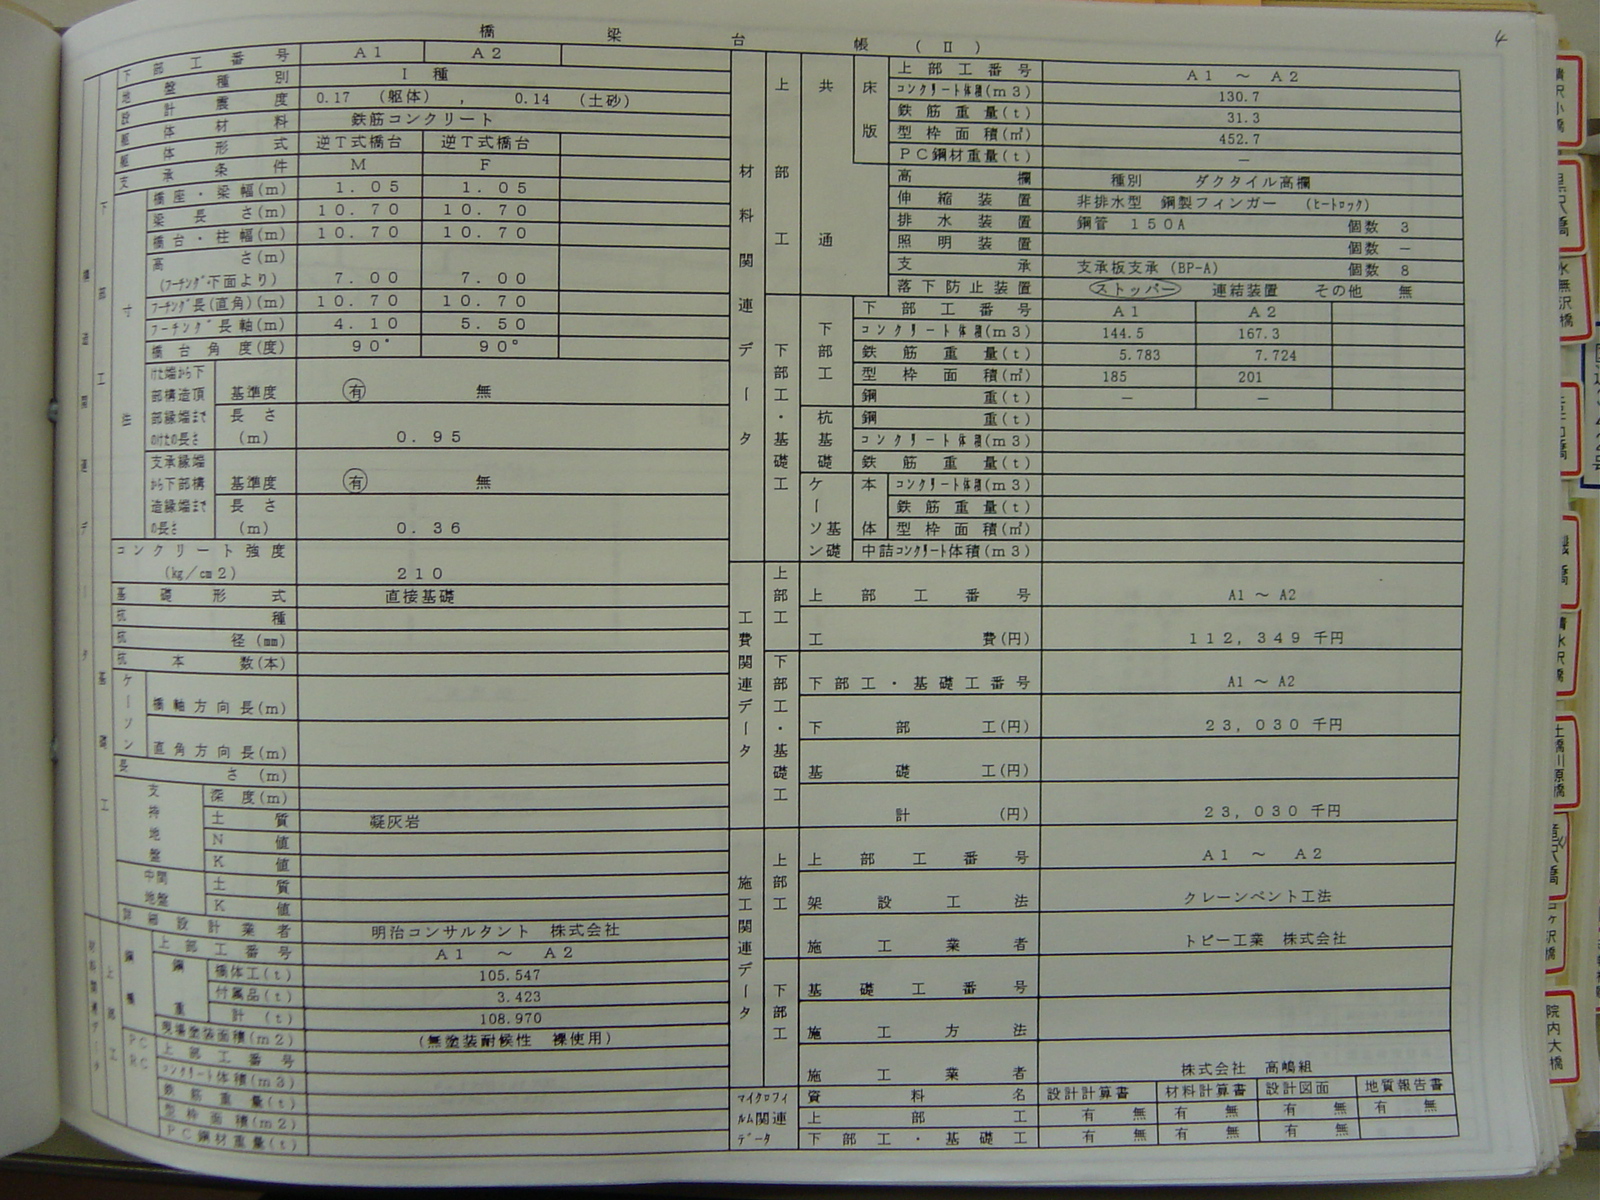 橋 梁 台 帳 ( Ⅱ )
4
下部工番号 A1 A2
地盤種別 I 種
設計震度 0.17 (躯体) , 0.14 (土砂)
躯体材料 鉄筋コンクリート
躯体形式 逆T式橋台 逆T式橋台
支承条件 M F
橋座・梁幅(m) 1.05 1.05
梁長さ(m) 10.70 10.70
橋台・柱幅(m) 10.70 10.70
高さ(m)
(フーチング下面より) 7.00 7.00
フーチング長(直角)(m) 10.70 10.70
フーチング長軸(m) 4.10 5.50
橋台角度(度) 90° 90°
けた端から下部構造頂部縁端までのけたの長さ
基準度 有 無
長さ(m) 0.95
支承縁端から下部構造縁端までの長さ
基準度 有 無
長さ(m) 0.36
寸法
下部工
構造関連データ
コンクリート強度
(kg/cm2) 210
基礎形式 直接基礎
杭種
杭径(mm)
杭本数(本)
ケーソン
橋軸方向長(m)
直角方向長(m)
長さ(m)
基礎工
支持地盤
深度(m)
土質 凝灰岩
N値
K値
中間地盤
土質
K値
詳細設計業者 明治コンサルタント 株式会社
材料関連データ
上部工
鋼橋
上部工番号 A1 ~ A2
鋼重
橋体工(t) 105.547
付属品(t) 3.423
計(t) 108.970
現場塗装面積(m2) (無塗装耐候性 裸使用)
PC RC
上部工番号
コンクリート体積(m3)
鉄筋重量(t)
型枠面積(m2)
PC鋼材重量(t)
材料関連データ
上部工
共通
床版
上部工番号 A1 ~ A2
コンクリート体積(m3) 130.7
鉄筋重量(t) 31.3
型枠面積(㎡) 452.7
PC鋼材重量(t) —
高欄 種別 ダクタイル高欄
伸縮装置 非排水型 鋼製フィンガー (ヒートロック)
排水装置 鋼管 150A 個数 3
照明装置 個数 —
支承 支承板支承(BP-A) 個数 8
落下防止装置 ストッパー 連結装置 その他 無
下部工・基礎工
下部工
下部工番号 A1 A2
コンクリート体積(m3) 144.5 167.3
鉄筋重量(t) 5.783 7.724
型枠面積(㎡) 185 201
鋼重(t) — —
杭基礎
鋼重(t)
コンクリート体積(m3)
鉄筋重量(t)
ケーソン基礎
本体
コンクリート体積(m3)
鉄筋重量(t)
型枠面積(㎡)
中詰コンクリート体積(m3)
工費関連データ
上部工
上部工番号 A1 ~ A2
工費(円) 112,349 千円
下部工・基礎工
下部工・基礎工番号 A1 ~ A2
下部工(円) 23,030 千円
基礎工(円)
計(円) 23,030 千円
施工関連データ
上部工
上部工番号 A1 ~ A2
架設工法 クレーンベント工法
施工業者 トピー工業 株式会社
下部工
基礎工番号
施工方法
施工業者 株式会社 高嶋組
マイクロフィルム関連データ
資料名 設計計算書 材料計算書 設計図面 地質報告書
上部工 有 無 有 無 有 無 有 無
下部工・基礎工 有 無 有 無 有 無
水無沢橋
清水沢橋
土橋川原橋
院内大橋